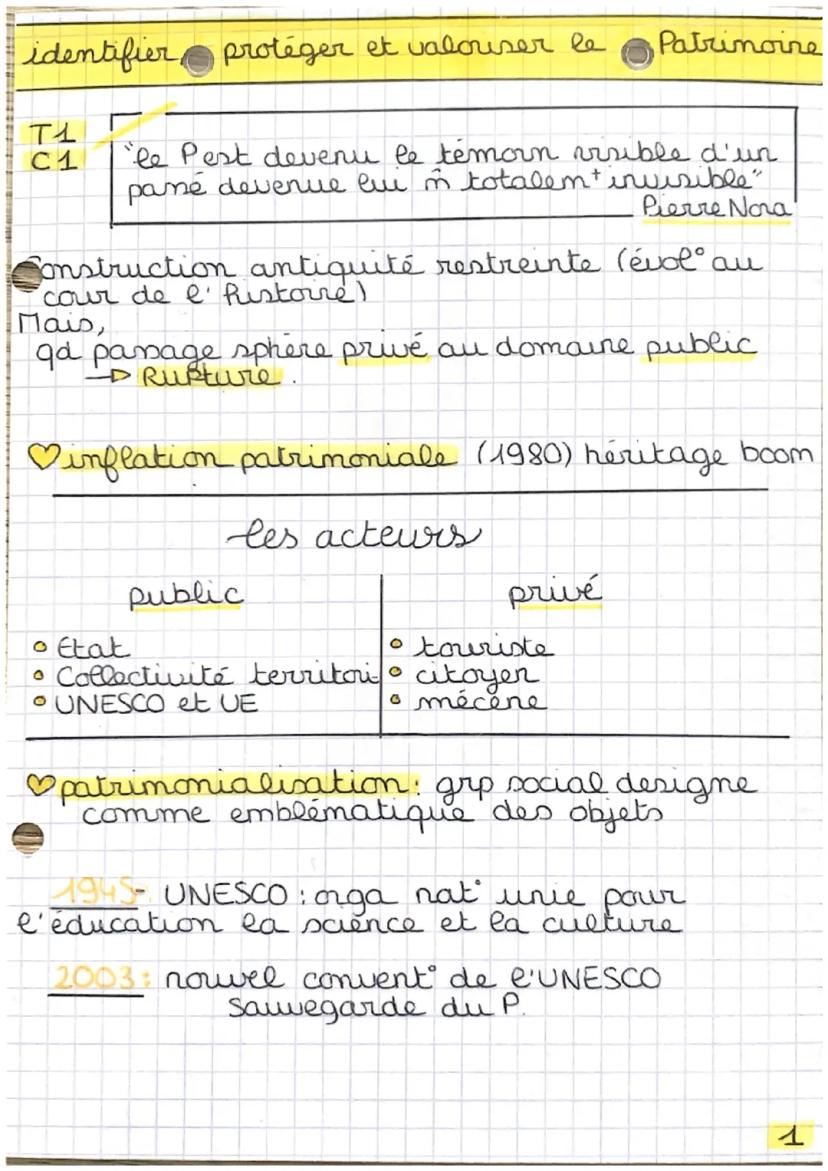 identifier, protéger et valoriser le Patrimoine
T1
C1
"le P est devenu le témoin visible d'un
passé devenue lui m̂ totalem+ invisible"
Pierre Nora
Construction antiquité restreinte (évol° au
cour de l'histoire)
Mais,
qd passage sphère privé au domaine public
→ Rupture.
♡ inflation patrimoniale (1980) héritage boom
les acteurs
public
privé
• Etat
• touriste
• Collectivité territori
• citoyen
• UNESCO et UE
• mécène
♡ patrimonialisation: grp social designe
comme emblématique des objets
1945- UNESCO : orga nat° unie pour
l'éducation la science et la culture
2003: nouvel convent° de l'UNESCO
Sauvegarde du P.
1